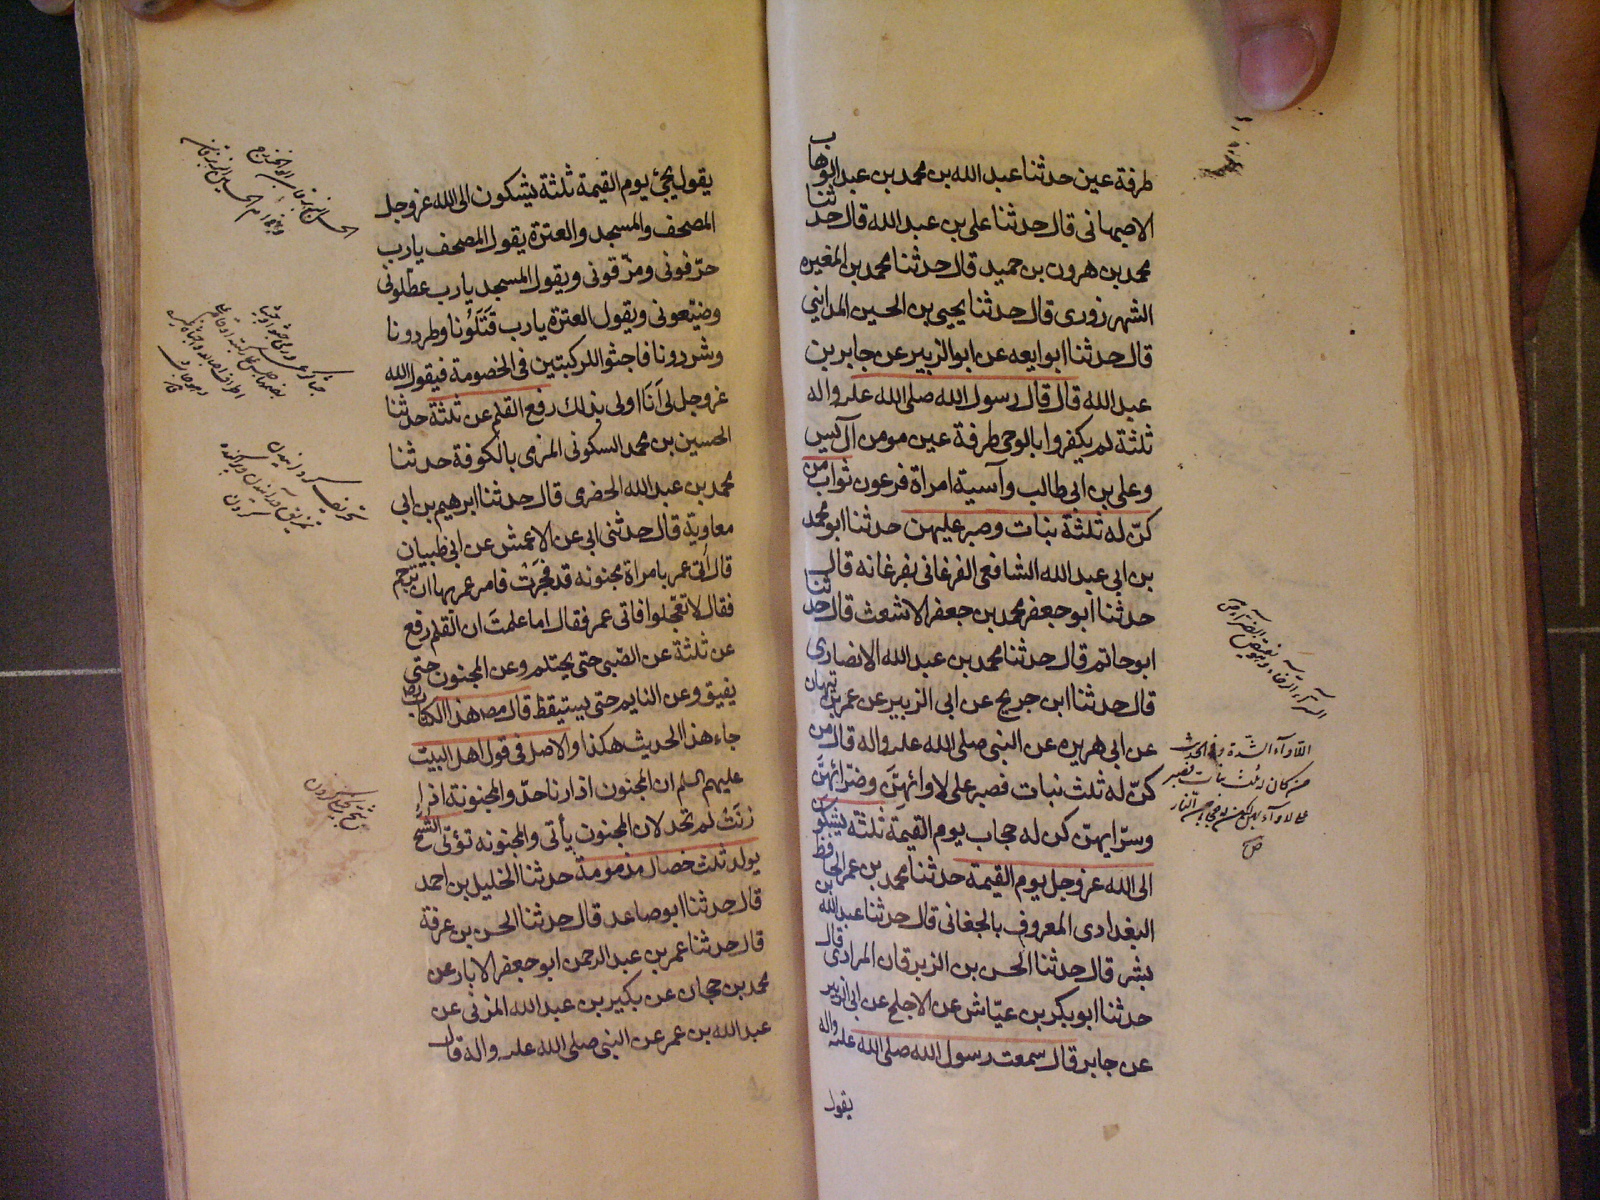 طرفة عين حدثنا عبد الله بن محمد بن عبد الوهاب
الاصبهانى قال حدثنا على بن عبد الله قال حدثنا
محمد بن هرون بن حميد قال حدثنا محمد بن المغيره
الشهرزورى قال حدثنا يحيى بن الحسين المداينى
قال حدثنا ابو ليعه عن ابو الزبير عن جابر بن
عبد الله قال قال رسول الله صلى الله عليه واله
ثلثة لم يكفروا بالوحى طرفة عين مومن آل يس
وعلى بن ابى طالب وآسية امراة فرعون ثواب من
كنّ له ثلثة بنات وصبر عليهن حدثنا ابو محمد
بن ابى عبد الله الشافعى الفرغانى بفرغانه قال
حدثنا ابو جعفر محمد بن جعفر الاشعث قال حدثنا
ابو حاتم قال حدثنا محمد بن عبد الله الانصارى
قال حدثنا ابن جريج عن ابى الزبير عن عمر بن تيهان
عن ابى هريره عن النبى صلى الله عليه واله قال من
كنّ له ثلث بنات فصبر على لاوائهنّ وضرّائهنّ
وسرّايهنّ كن له حجاب يوم القيمة ثلثة يشكون
الى الله عز وجل يوم القيمة حدثنا محمد بن عمر الحافظ
البغدادى المعروف بالجعانى قال حدثنا عبد الله بن
بشر قال حدثنا الحسن بن الزبرقان المرادى قال
حدثنا ابو بكر بن عيّاش عن الاجلح عن ابى الزبير
عن جابر قال سمعت رسول الله صلى الله عليه واله
يقول
اللاوآء الشدة وفى الحديث
من كان له ثلث بنات فصبر
على لاوآءهن كن له حجابا من النار
يقول يجئ يوم القيمة ثلثة يشكون الى الله عز وجل
المصحف والمسجد والعترة يقول المصحف يارب
حرّفونى ومزّقونى ويقول المسجد يارب عطّلونى
وضيّعونى ويقول العترة يارب قَتَلُونا وطردونا
وشردونا فاجثوا للركبتين فى الخصومة فيقول الله
عز وجل لى اَنَا اولى بذلك رفع القلم عن ثلثة حدثنا
الحسين بن محمد السكونى المزى بالكوفة حدثنا
محمد بن عبد الله الحضرى قال حدثنا ابرهيم بن ابى
معاوية قال حدثنى ابى عن الاعمش عن ابى ظبيان
قال اَتى عمر بامراة مجنونه قد فجَرَتْ فامر عمر بها ان ترجم
فقال لا تعجّلوا فاتى عمر فقال اما علمتَ ان القلم رفع
عن ثلثة عن الصّبى حتى يحتلم وعن المجنون حتى
يفيق وعن النايم حتى يستيقظ قال مص هذا الكتاب
جاء هذا الحديث هكذا والاصل فى قول اهل البيت
عليهم السلم ان المجنون اذا زنا حدّ والمجنونة اذا
زنَتْ لم تحد لان المجنون يأتى والمجنونه تؤتى الشح
يولد ثلث خصال مذمومة حدثنا الخليل بن احمد
قال حدثنا ابو صاعد قال حدثنا الحسن بن عرفة
قال حدثنا عمر بن عبد الرحمن ابو جعفر الابار عن
محمد بن حجان عن بكير بن عبد الله المزنى عن
عبد الله بن عمر عن النبى صلى الله عليه واله قال